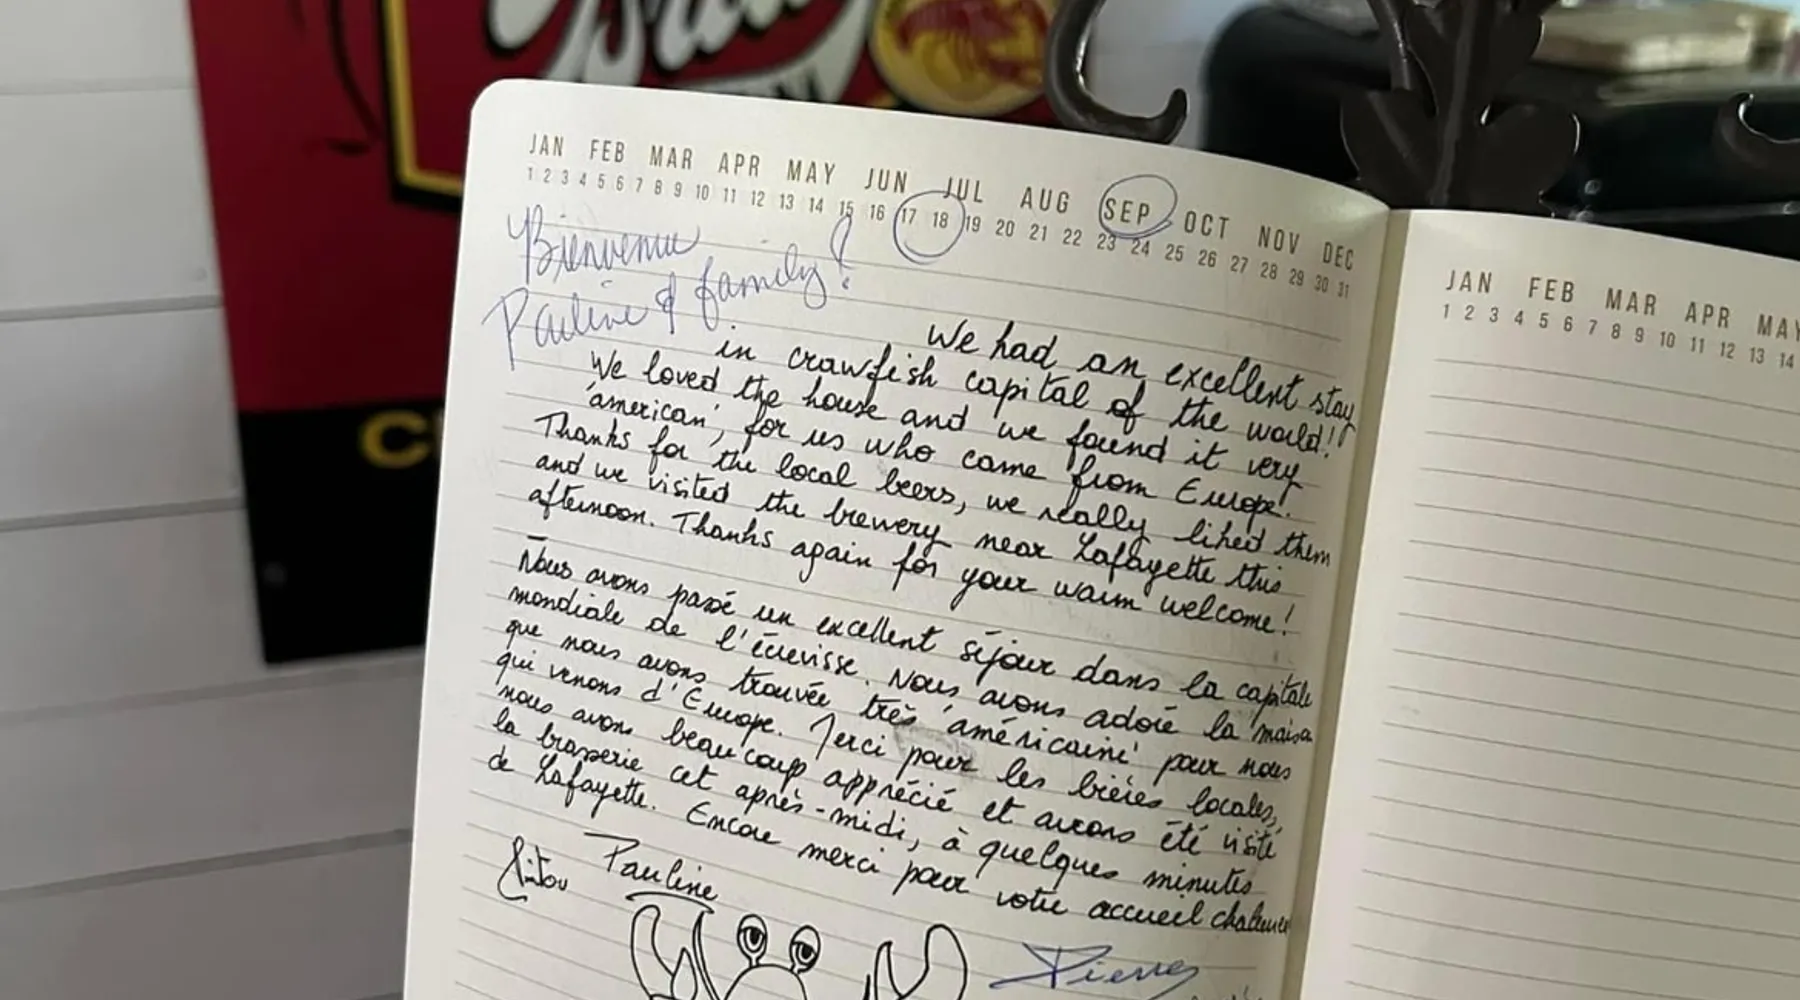 JAN FEB MAR APR MAY JUN JUL AUG SEP OCT NOV DEC
1 2 3 4 5 6 7 8 9 10 11 12 13 14 15 16 17 18 19 20 21 22 23 24 25 26 27 28 29 30 31
Bienvenue
Pauline & family!
We had an excellent stay
in crawfish capital of the world!!
We loved the house and we found it very
'american', for us who come from Europe!
Thanks for the local beers, we really liked them
and we visited the brewery near Lafayette this
afternoon. Thanks again for your warm welcome!
Nous avons passé un excellent séjour dans la capitale
mondiale de l'écrevisse. Nous avons adoré la maison
que nous avons trouvée très 'américaine' pour nous
qui venons d'Europe. Merci pour les bières locales,
nous avons beaucoup apprécié et avons été visité
la brasserie cet après-midi, à quelques minutes
de Lafayette. Encore merci pour votre accueil
Pauline
Pierre
JAN FEB MAR APR MAY
1 2 3 4 5 6 7 8 9 10 11 12 13 14